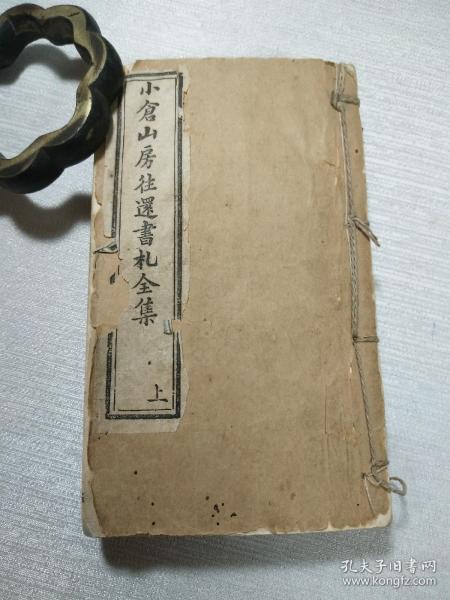 小倉山房往還書札全集
上
孔夫子旧书网
www.kongfz.com